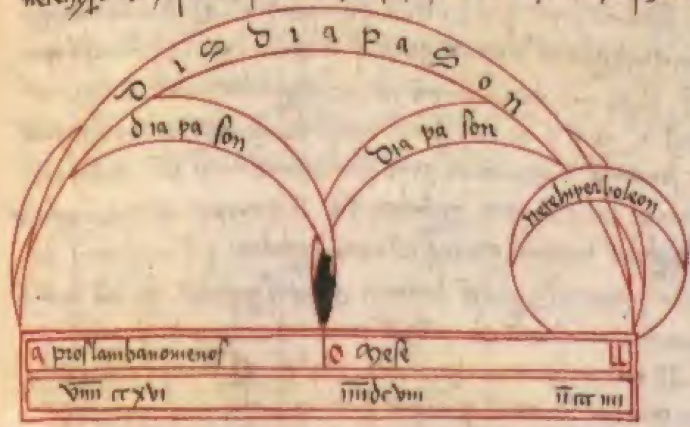 disdiapason
diapason diapason
netehiperboleon
a proslambanomenos O Mese LL
VIIII CCXVI IIIIDCVIII IICCCIIII